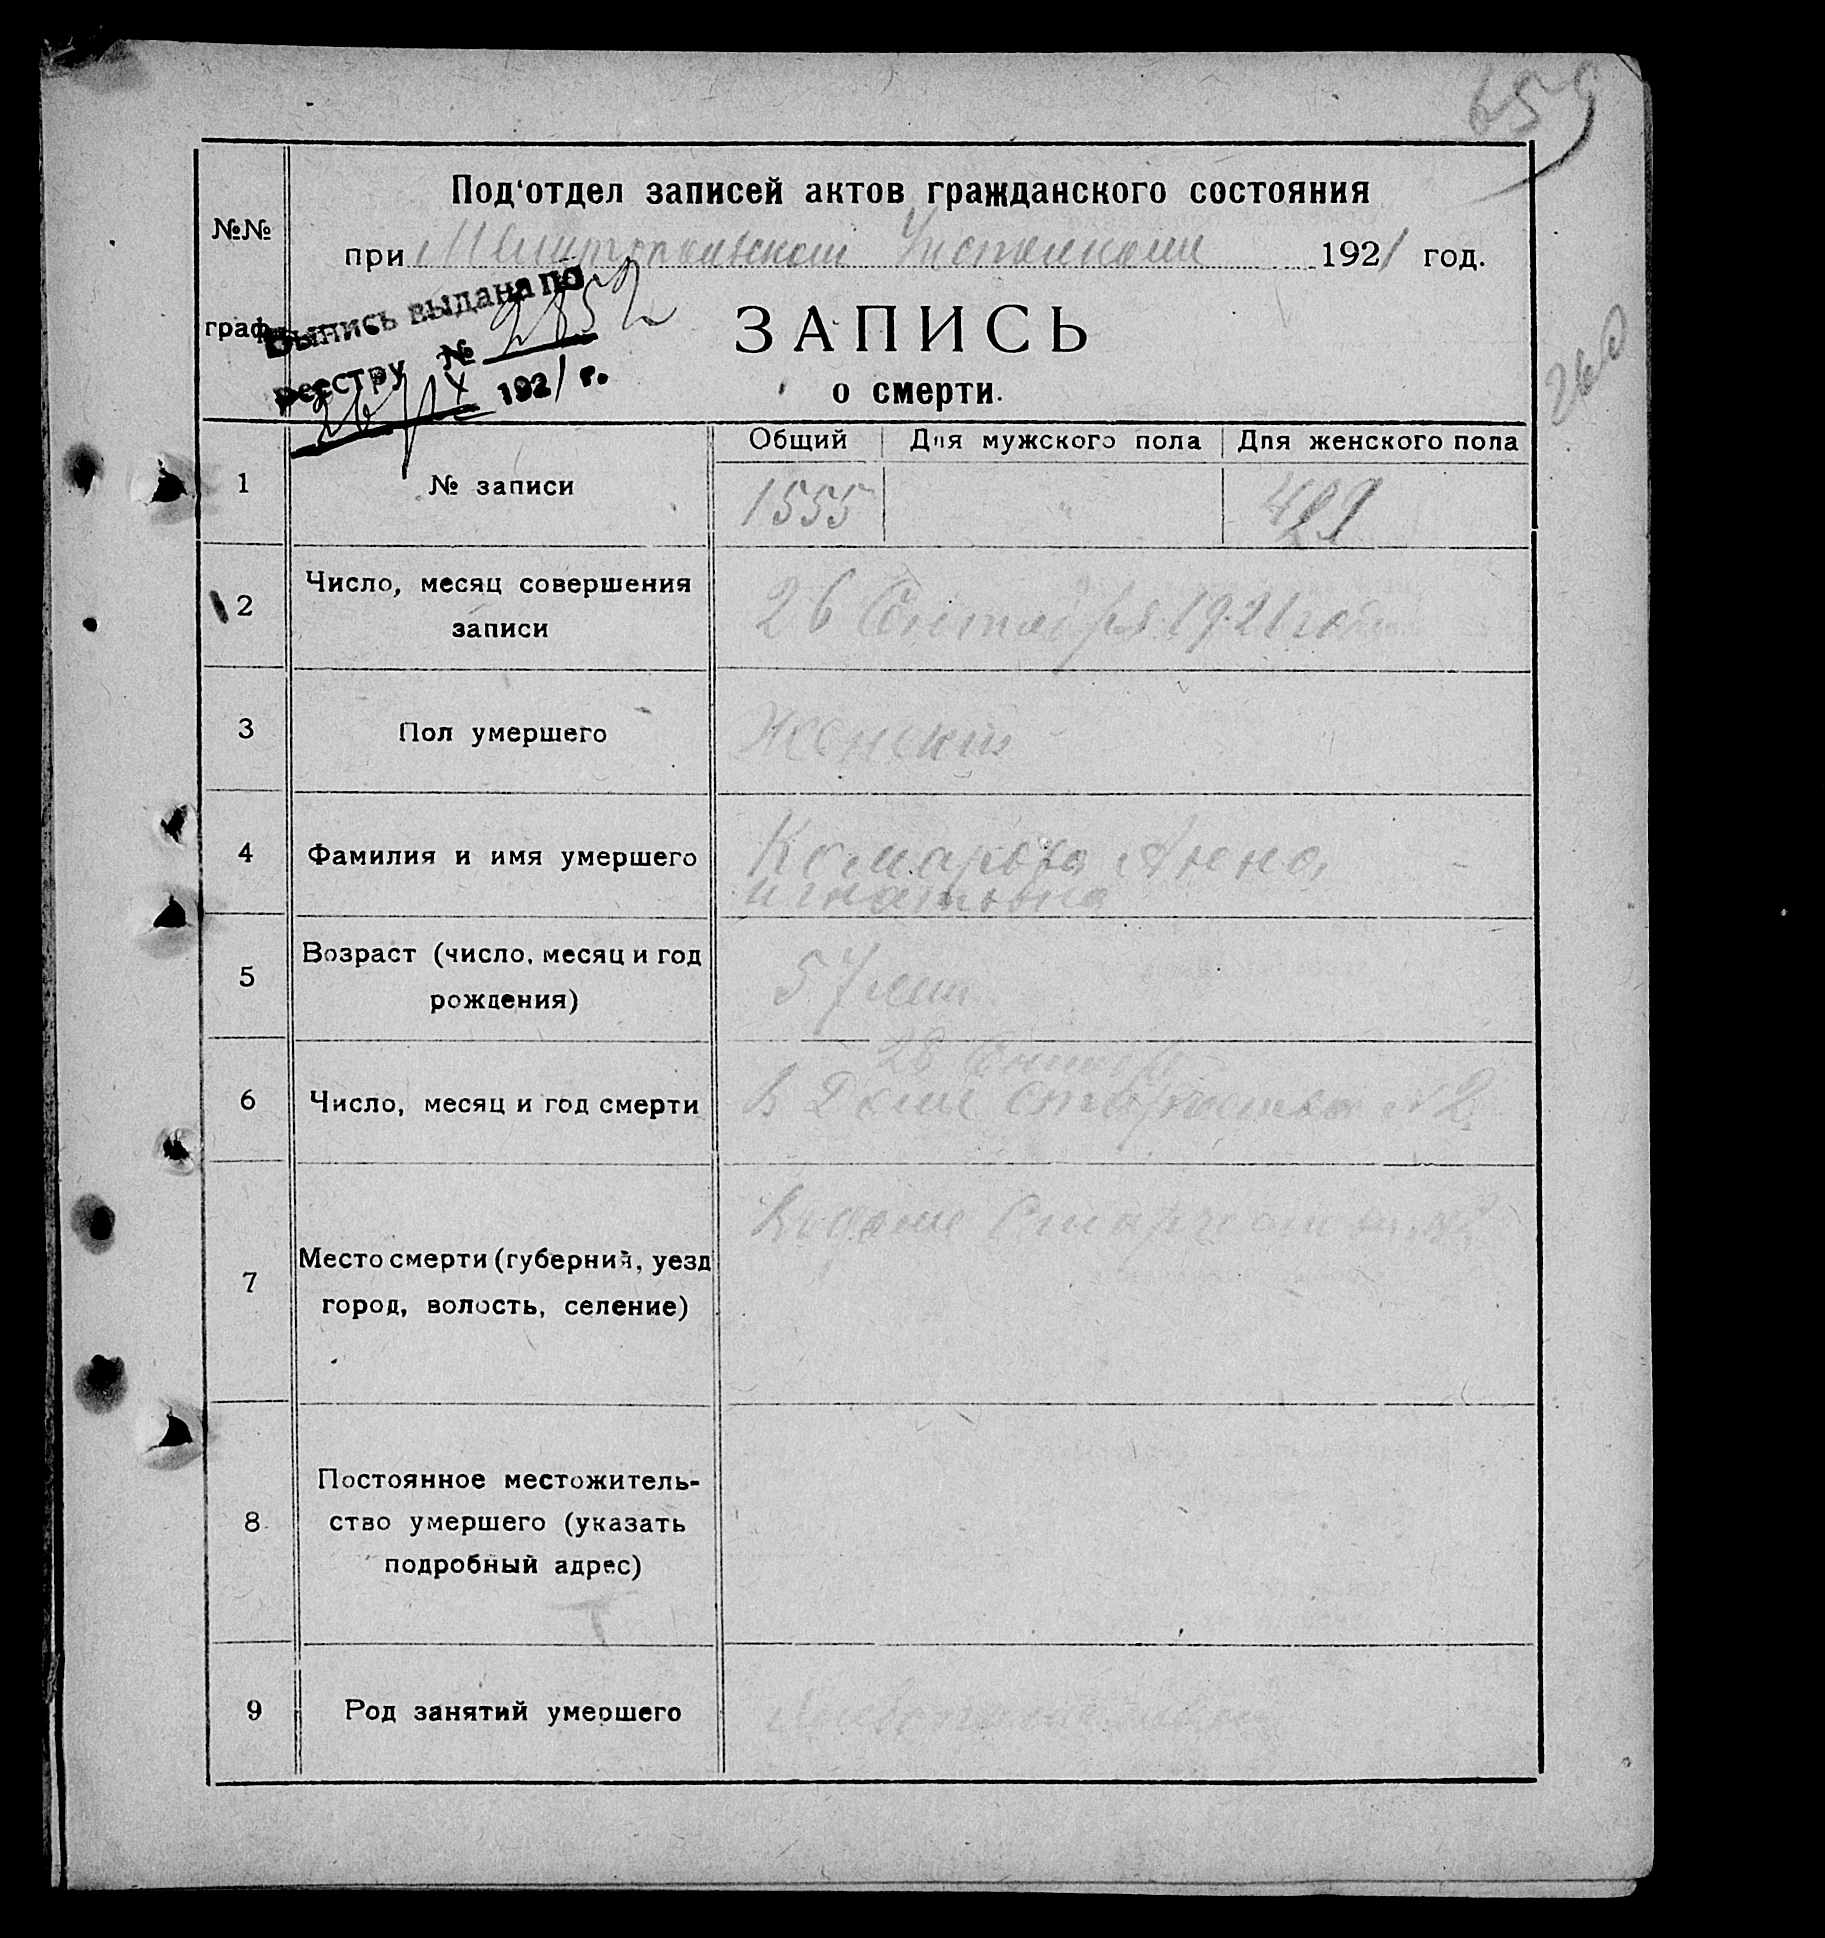 659
Под'отдел записей актов гражданского состояния
№№
при Мелитопольском Уисполкоме 1921 год.
Выпись выдана по
граф.
реестру № 2852
ЗАПИСЬ
26/IX 1921 г.
о смерти.
260
Общий Для мужского пола Для женского пола
1 № записи 1555 " 429
2 Число, месяц совершения 26 Сентября 1921 года
записи
3 Пол умершего Женский
4 Фамилия и имя умершего Комарова Анна
Игнатьевна
5 Возраст (число, месяц и год 57 лет
рождения)
26 Сентября
6 Число, месяц и год смерти В Доме старчества № 2
В доме Старчества № 2
7 Место смерти (губерния, уезд
город, волость, селение)
Постоянное местожитель-
8 ство умершего (указать
подробный адрес)
9 Род занятий умершего